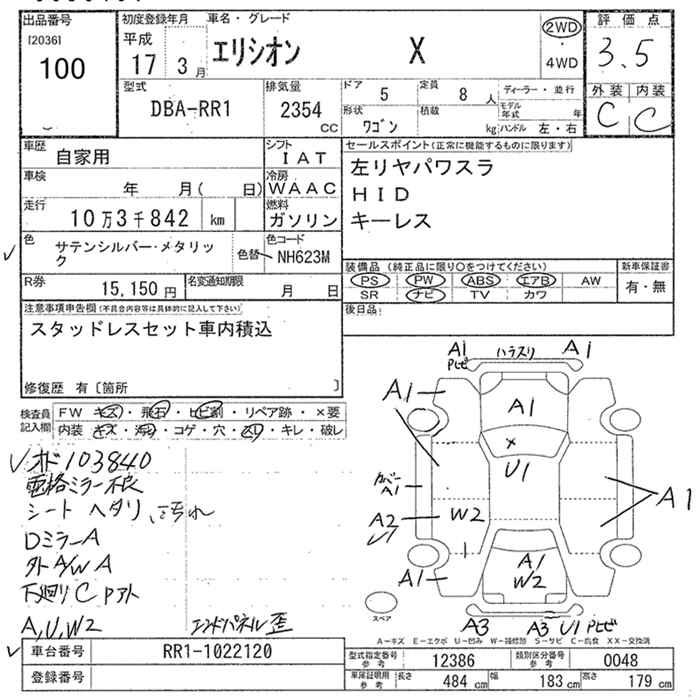 出品番号 初度登録年月 車名・グレード 評価点
[2036] 平成 エリシオン X 2WD 3.5
100 17 3月 ・4WD
型式 排気量 ドア 5 定員 8人 ディーラー・並行 外装 内装
DBA-RR1 2354 cc 形状 ワゴン 積載 kg モデル年式 年 C C
ハンドル 左・右
車歴 自家用 シフト IAT セールスポイント(正常に機能するものに限ります)
車検 年 月( 日) 冷房 WAAC 左リヤパワスラ
走行 10万3千842 km 燃料 ガソリン HID
キーレス
色 サテンシルバー・メタリック 色替 色コード NH623M
装備品(純正品に限り○をつけてください) 新車保証書
R券 15,150円 名変通知期限 月 日 PS PW ABS エアB AW 有・無
SR ナビ TV カワ
注意事項申告欄(不具合内容等は具体的に記入して下さい) 後日品:
スタッドレスセット車内積込
修復歴 有〔箇所 〕
検査員記入欄 FW キズ・飛石・ヒビ割・リペア跡・×要
内装 キズ・汚れ・コゲ・穴・スリ・キレ・破レ
オド103840
電格ミラー不良
シート ヘタリ、汚れ
DミラーA
外A/W A
下廻りC Pアト
A,U,W2 エンドパネル歪
A1 Pヒビ ハラスリ A1
A1 A1
U1
カバー A1 A1
A2 W2
U1
A1 A1 W2
スペア
A3 A3 U1 Pヒビ
A-キズ E-エクボ U-凹み W-補修跡 S-サビ C-腐食 XX-交換済
車台番号 RR1-1022120 型式指定番号 参考 12386 類別区分番号 参考 0048
登録番号 車庫証明用 参考 長さ 484 cm 幅 183 cm 高さ 179 cm